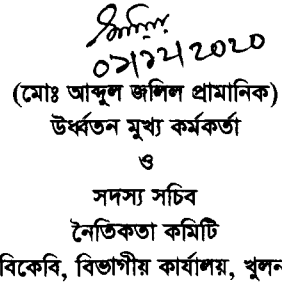 ০১/১২/2020
(মোঃ আব্দুল জলিল প্রামানিক)
উর্ধ্বতন মুখ্য কর্মকর্তা
ও
সদস্য সচিব
নৈতিকতা কমিটি
বিকেবি, বিভাগীয় কার্যালয়, খুলন